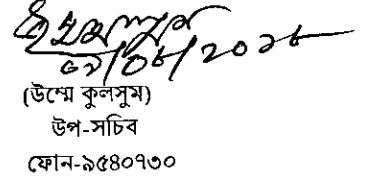 ০৯/০৮/২০১৮
(উম্মে কুলসুম)
উপ-সচিব
ফোন-৯৫৪০৭৩০